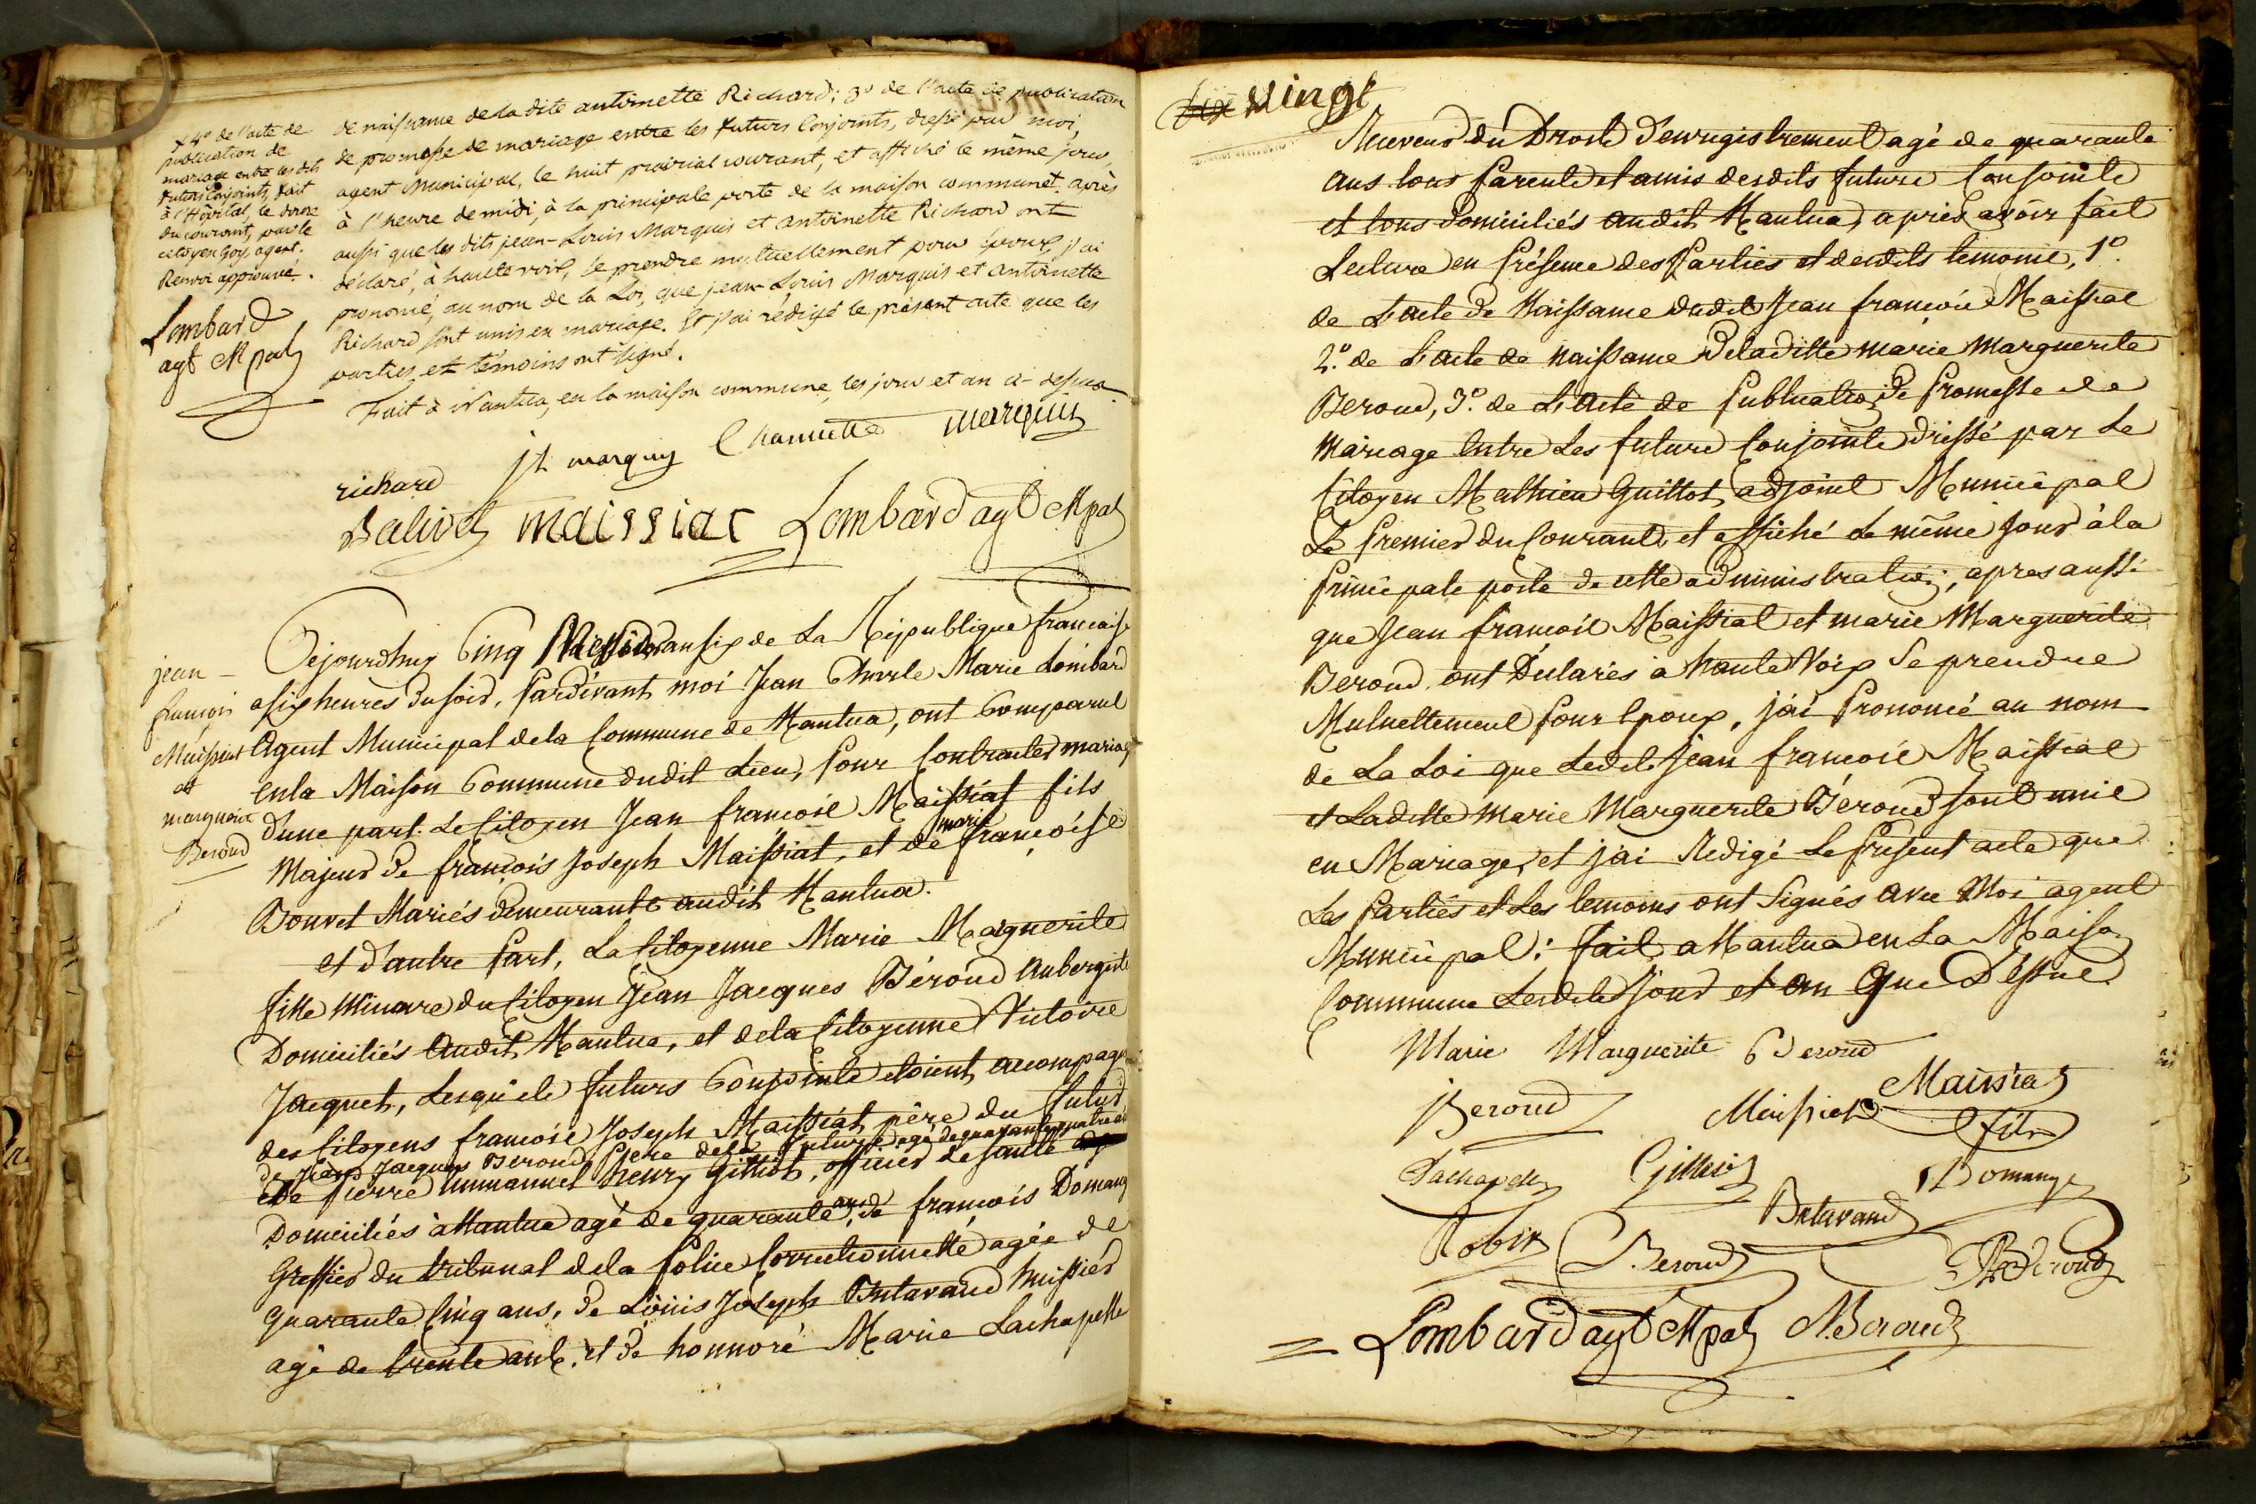 + 4° de l'acte de
publication de
mariage entre les dits
futurs Conjoints, fait
à l'Hôpital, le douze
du courant, par le
citoyen Goy, agent.
Renvoi approuvé.
Lombard
agt Mpal
de naissance de la dite antoinette Richard; 3° de l'acte de publication
de promesse de mariage entre les futurs Conjoints, dressé par moi,
agent Municipal, le huit prairial courant, et affiché le même jour,
à l'heure de midi, à la principale porte de la maison commune. après
aussi que les dits jean-Louis Marquis et antoinette Richard ont
déclaré, à haute voix, se prendre mutuellement pour époux, j'ai
prononcé, au nom de la Loi, que jean-Louis Marquis et antoinette
Richard sont unis en mariage. Et j'ai rédigé le présent acte que les
parties et témoins ont signé.
Fait à Nantua, en la maison commune, les jour et an ci-dessus
richard jL marquis marquis
Balivet maissiac Lombard agt Mpal
jean-
françois
Maissiat
et
marguerite
Beroud
Cejourdhuy Cinq Messidor an six de La République francaise
a six heures du soir. Pardevant moi Jean Charle Marie Lombard
Agent Municipal dela Commune de Nantua, ont Comparut
enla Maison Commune dudit Lieu, pour Contracter mariage
d'une part. Le Citoyen Jean francois Maissiat fils
Majeur de francois Joseph Maissiat, et de marie françoise
Bouvet Mariés demeurants audit Nantua.
et d'autre Part, La Citoyenne Marie Marguerite
fille Mineure du Citoyen Jean Jacques Béroud Aubergiste
Domiciliés audit Nantua, et dela Citoyenne Victoire
Jacquet, Lesquels futurs Conjoints etoient acompagné
des Citoyens francois Joseph Maissiat père du futur
de Jean Jacques Beroud Pere dela future agé de quarante quatre ans
et de Pierre immanuel henry Gilliot, officier de santé
Domiciliés à Nantua agé de quarante ans, de francois Domange
Greffier du tribunal dela Police Correctionnelle agée de
quarante Cinq ans, de Louis Joseph Butavand huissier
agé de trente ans, et de honnoré Marie Lachapelle
vingt
Receveur du Droit d'enregistrement agé de quarante
ans tous Parents et amis desdits future Conjoints
et tous domiciliés audit Nantua, après avoir fait
Lecture en Présence des Parties et desdits temoins, 1°.
de L'acte de Naissance dudit Jean francois Maissiat
2°. de L'acte de naissance deladitte marie Marguerite
Beroud, 3°. de L'acte de Publication de Promesse de
Mariage Entre Les future Conjoints dressé par Le
Citoyen Mathieu Guillot adjoint Municipal
Le Premier du Courant, et affiché Le même Jour à la
Principale porte de cette administration; apres aussi
que Jean francois Maissiat et marie Marguerite
Beroud ont Déclarés a haute Voix Se prendre
Mutuellement Pour Epoux, j'ai Prononcé au nom
de La Loi que Ledit Jean francois Maissiat
et Laditte Marie Marguerite Béroud sont unie
en Mariage, et j'ai Redigé Le Présent acte que
Les Parties et Les temoins ont Signés avec Moi agent
Municipal: fait a Nantua en La Maison
Commune Lesdits Jour et an Que Dessus
Marie Marguerite Beroud
Beroud Maissiat Maissiat
fils
Lachapelle Gilliot Domange
Robin Beroud Butavand Beroud
Lombard agt Mpal Beroud